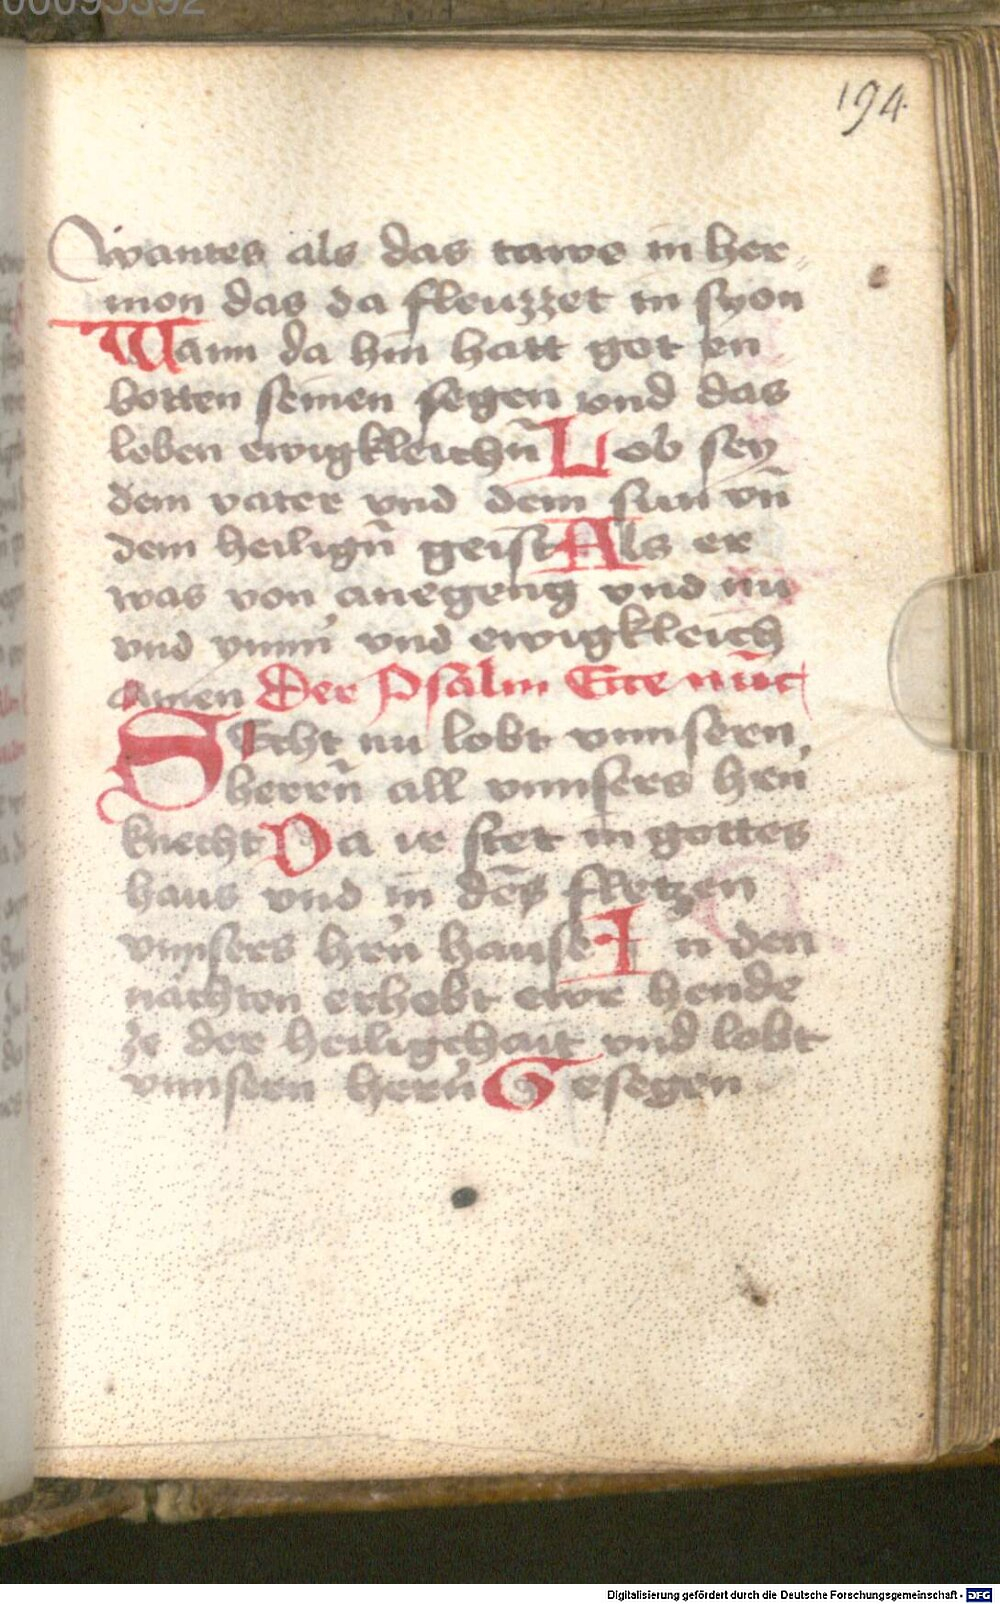 00095392
194
wantes als das tawe in her⸗
mon das da fleuzzet in syon
Wann da hin hatt got en
botten seinen segen vnd das
leben ewigkleichn̄ Lob sey
dem vater vnd dem sun vn̄
dem heilign̄ geist Als er
was von anegeng vnd nu
vnd ymm̄ vnd ewigkleich
Amen Der Psalm Ecce nūc
SEcht nu lobt vnnsern
herrn̄ all vnnsers hrn̄
knecht Da ir stet in gottes
haus vnd in den fletzen
vnnsers hrn̄ hause In den
nachten erhebt ewr hende
ze der heiligehait vnd lobt
vnnsern herrn̄ Gesegen
Digitalisierung gefördert durch die Deutsche Forschungsgemeinschaft - DFG